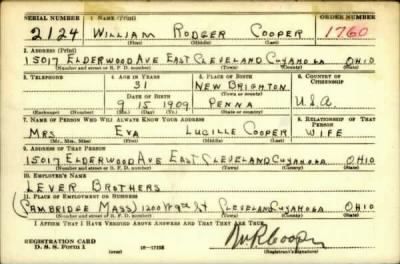 SERIAL NUMBER 1. NAME (Print) ORDER NUMBER
2124 WILLIAM RODGER COOPER 1760
(First) (Middle) (Last)
2. ADDRESS (Print)
15017 ELDERWOOD AVE EAST CLEVELAND CUYAHOGA OHIO
(Number and street or R. F. D. number) (Town) (County) (State)
3. TELEPHONE 4. AGE IN YEARS 5. PLACE OF BIRTH 6. COUNTRY OF CITIZENSHIP
31 NEW BRIGHTON
DATE OF BIRTH (Town or county)
9 15 1909 PENNA U.S.A.
(Exchange) (Number) (Mo.) (Day) (Yr.) (State or country)
7. NAME OF PERSON WHO WILL ALWAYS KNOW YOUR ADDRESS 8. RELATIONSHIP OF THAT PERSON
MRS EVA LUCILLE COOPER WIFE
(Mr., Mrs., Miss) (First) (Middle) (Last)
9. ADDRESS OF THAT PERSON
15017 ELDERWOOD AVE EAST CLEVELAND CUYAHOGA OHIO
(Number and street or R. F. D. number) (Town) (County) (State)
10. EMPLOYER'S NAME
LEVER BROTHERS
11. PLACE OF EMPLOYMENT OR BUSINESS
(CAMBRIDGE MASS) 1200 W 9TH St CLEVELAND CUYAHOGA OHIO
(Number and street or R. F. D. number) (Town) (County) (State)
I AFFIRM THAT I HAVE VERIFIED ABOVE ANSWERS AND THAT THEY ARE TRUE.
REGISTRATION CARD Wm R Cooper
D. S. S. Form 1 (Registrant's signature)